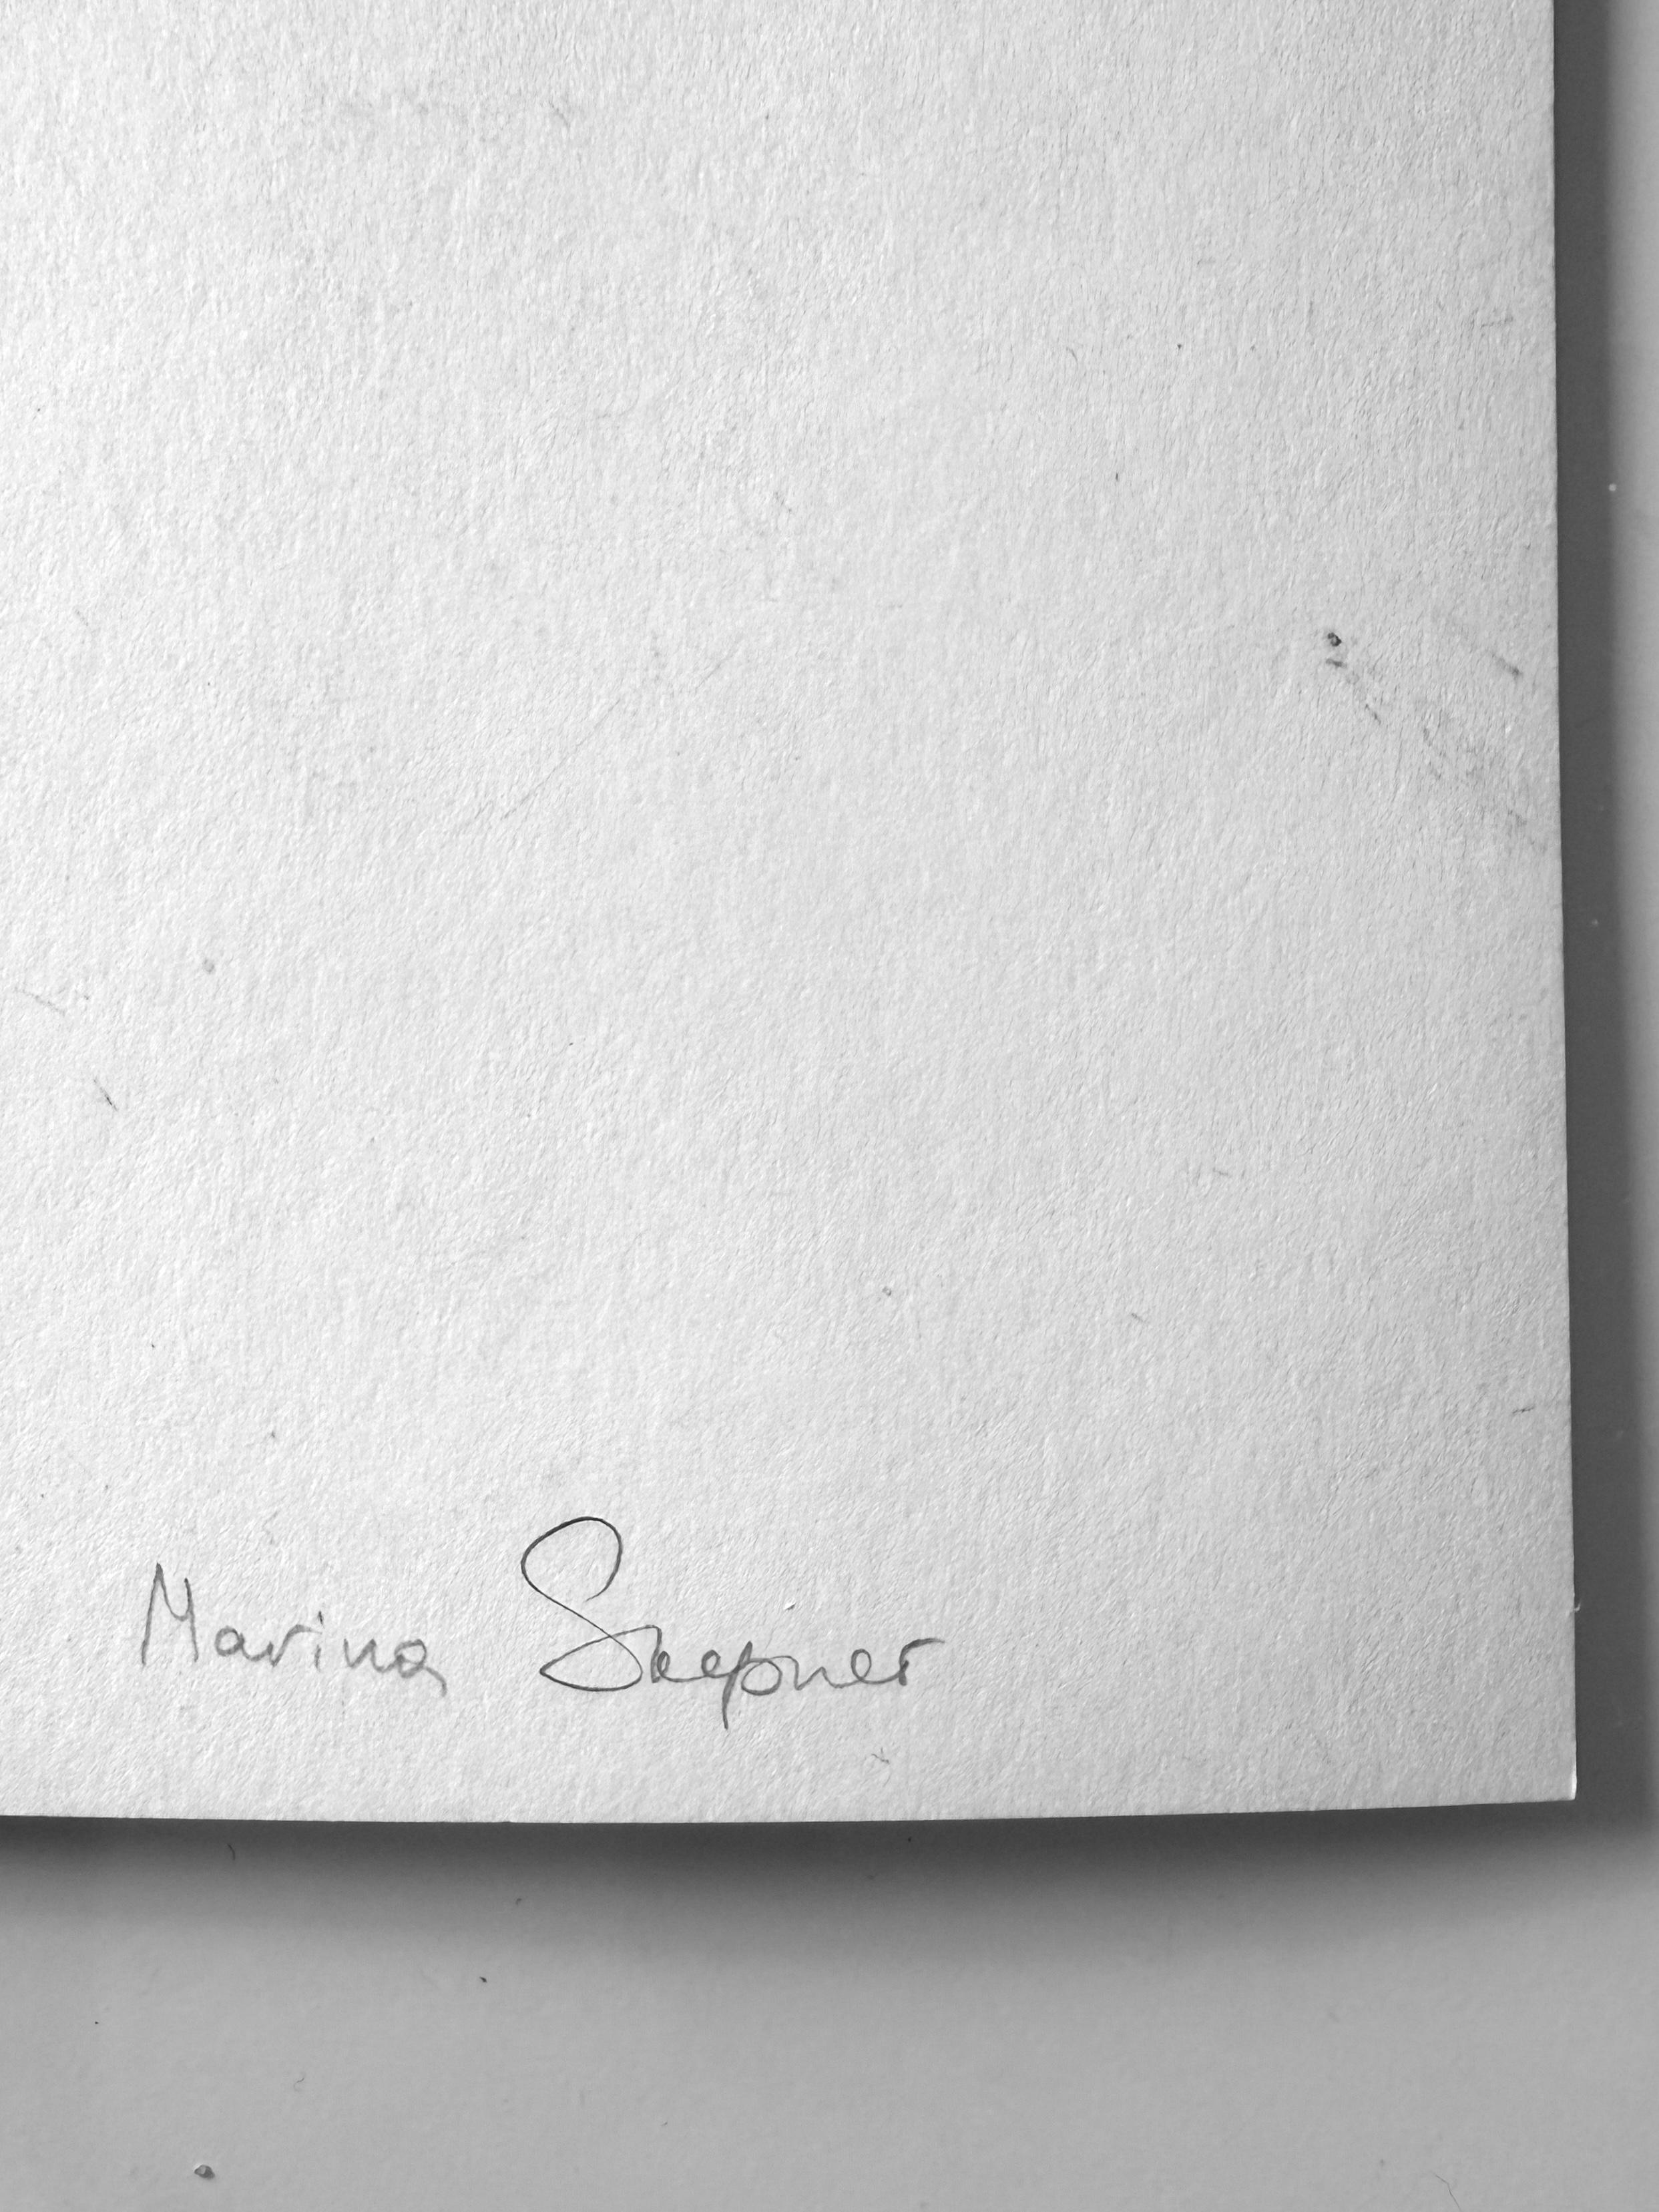 Marina Skepner